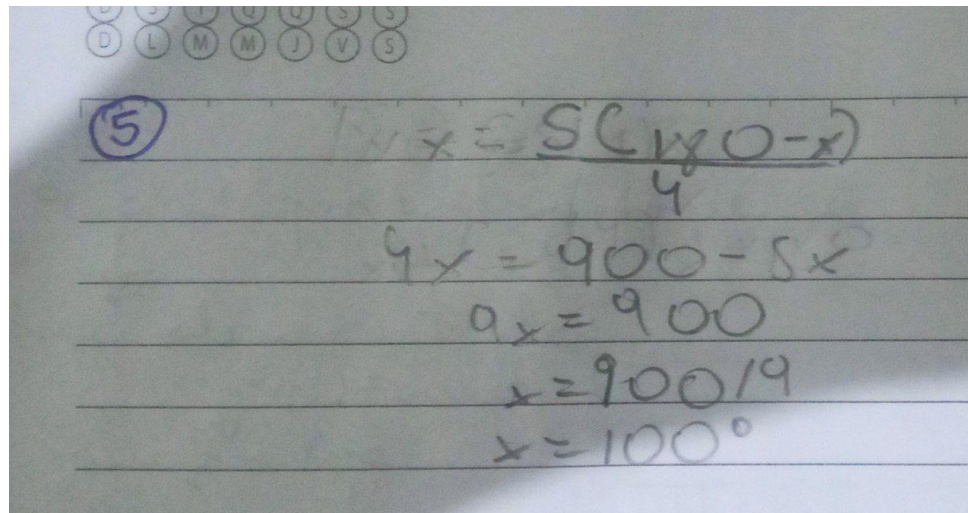 D L M M J V S
5
x = 5(180-x)
4
4x = 900 - 5x
9x = 900
x = 900/9
x = 100°